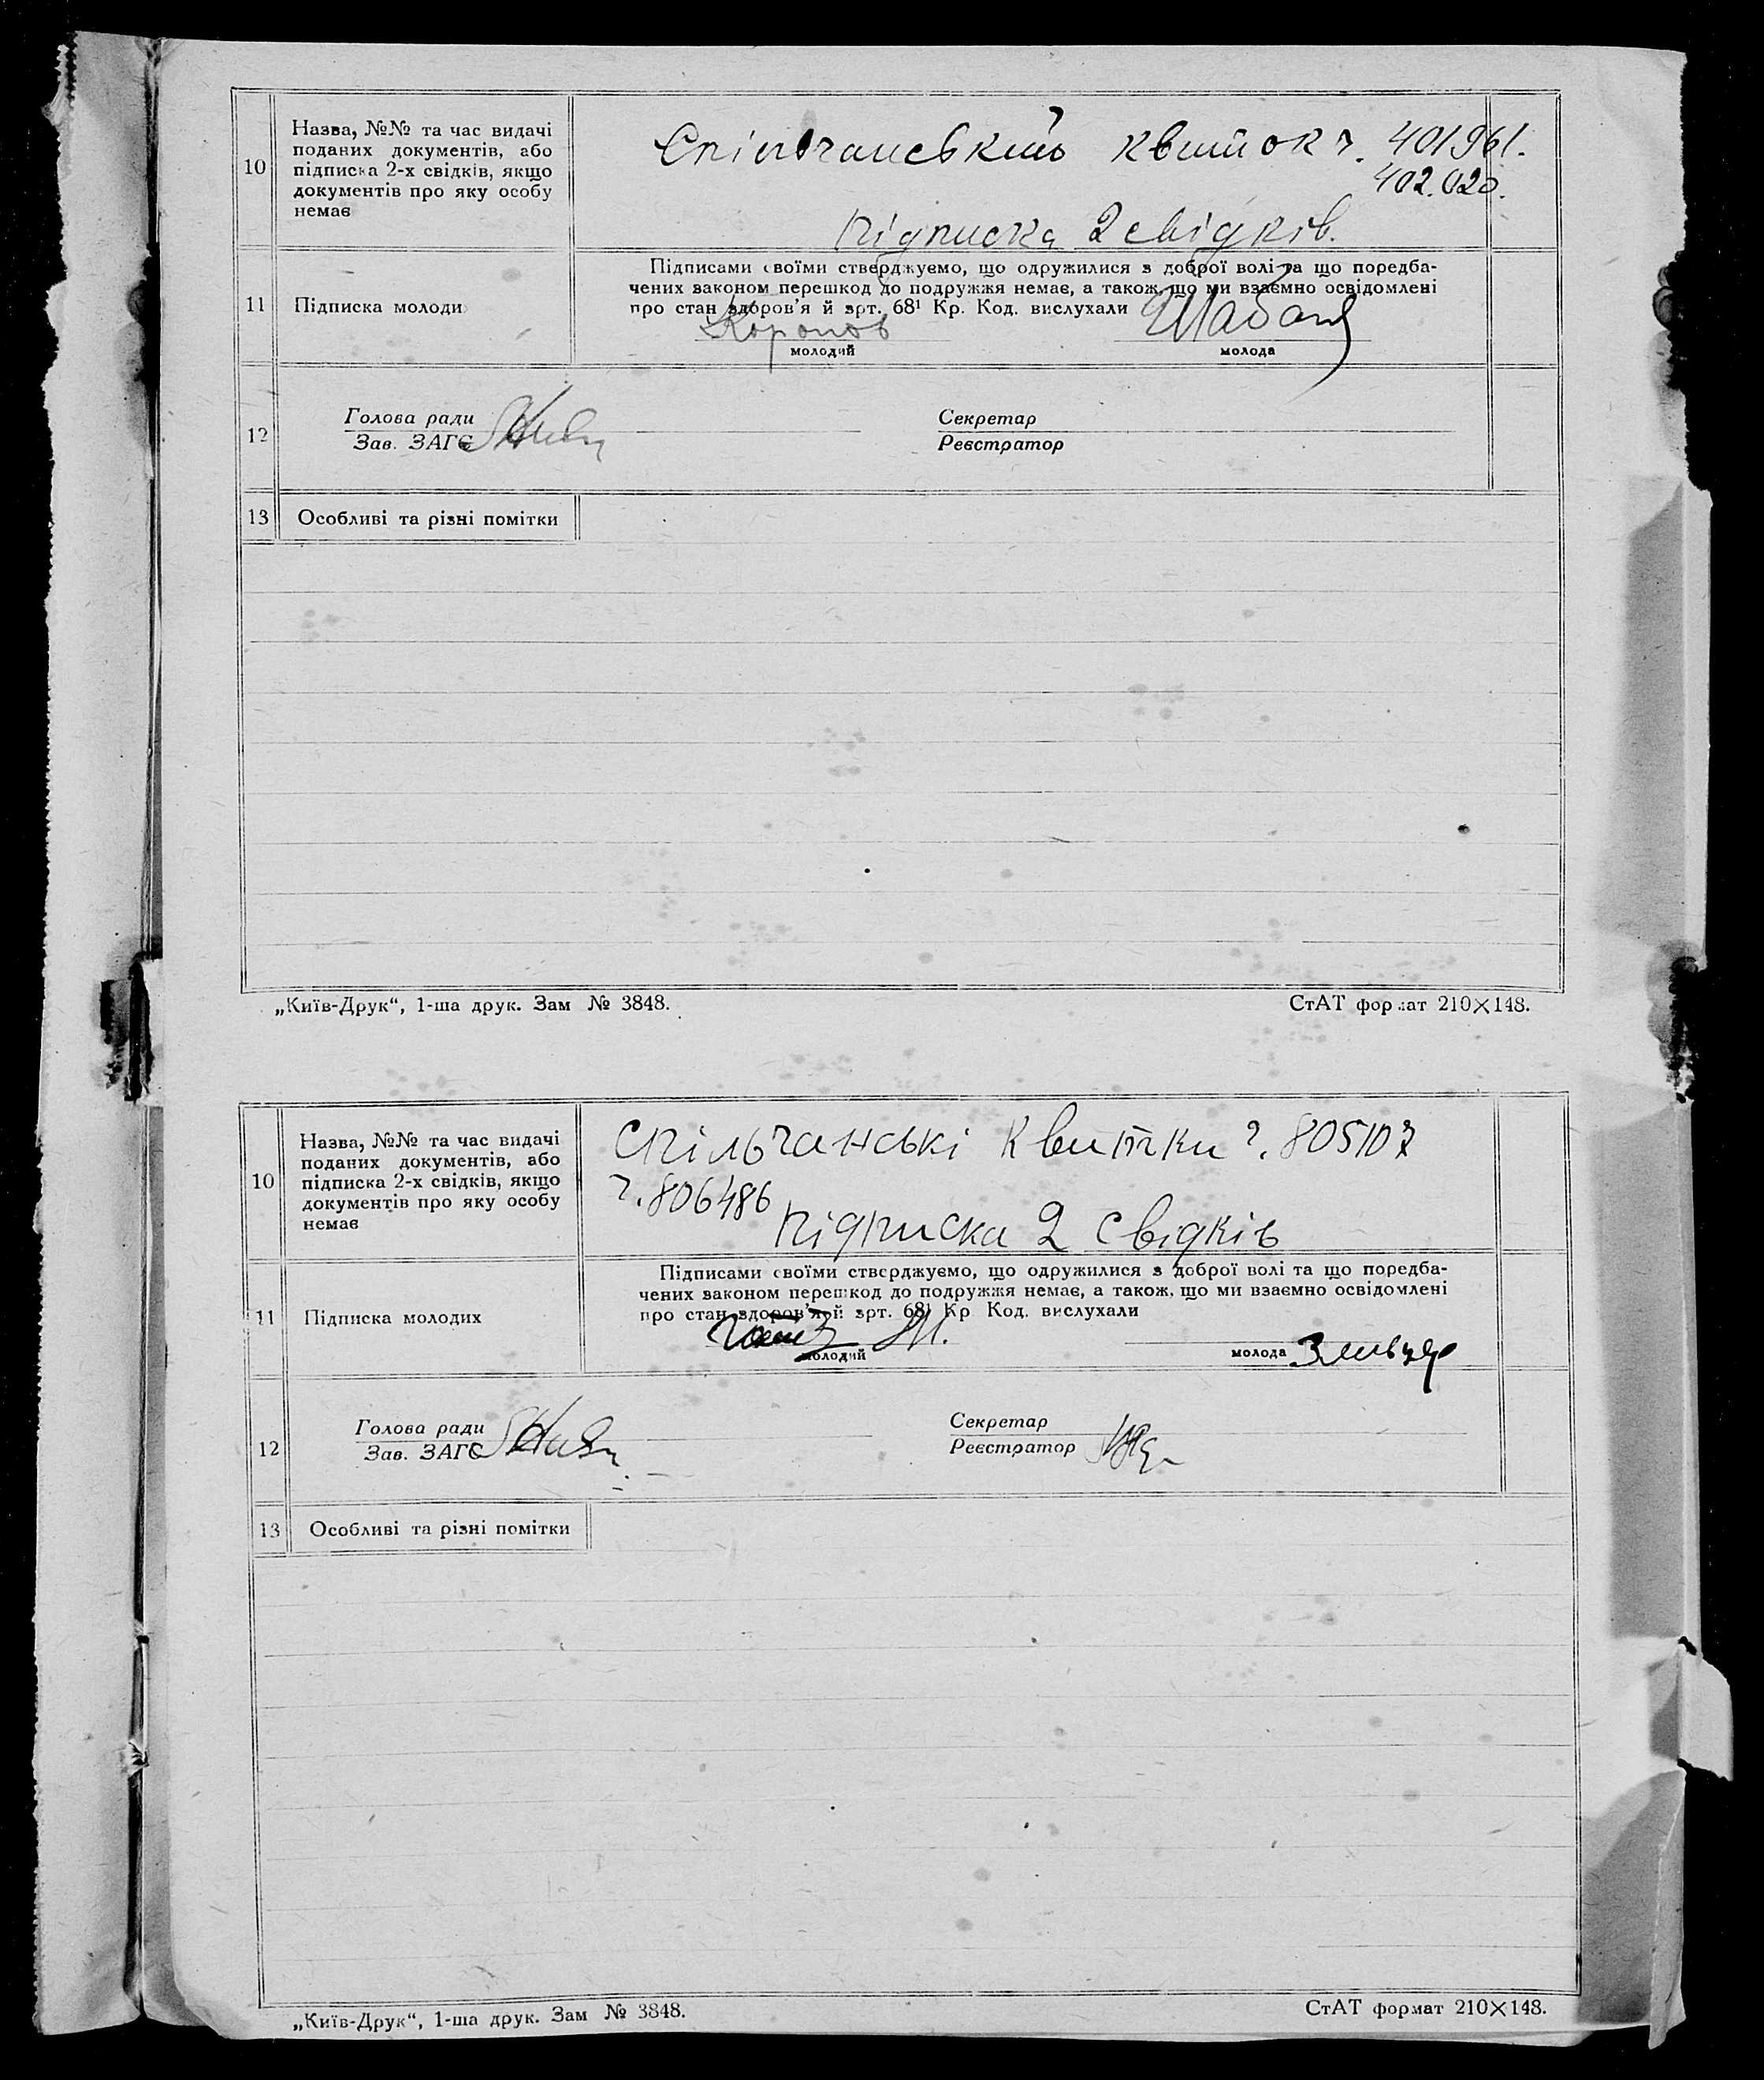 10
Назва, №№ та час видачі
поданих документів, або
підписка 2-х свідків, якщо
документів про яку особу
немає
Спільчанський квиток ч. 401961.
402.020.
Підписка 2 свідків.
11
Підписка молоди
Підписами своїми стверджуємо, що одружилися з доброї волі та що передба-
чених законом перешкод до подружжя немає, а також, що ми взаємно освідомлені
про стан здоров'я й арт. 68¹ Кр. Код. вислухали
молодий
молода
12
Голова ради
Зав. ЗАГС
Секретар
Реєстратор
13
Особливі та різні помітки
„Київ-Друк“, 1-ша друк. Зам № 3848.
СтАТ формат 210×148.
10
Назва, №№ та час видачі
поданих документів, або
підписка 2-х свідків, якщо
документів про яку особу
немає
Спільчанські квитки ч. 805107
ч. 806486
Підписка 2 свідків
11
Підписка молодих
Підписами своїми стверджуємо, що одружилися з доброї волі та що передба-
чених законом перешкод до подружжя немає, а також, що ми взаємно освідомлені
про стан здоров'я й арт. 68¹ Кр Код. вислухали
молодий
молода
12
Голова ради
Зав. ЗАГС
Секретар
Реєстратор
13
Особливі та різні помітки
„Київ-Друк“, 1-ша друк. Зам № 3848.
СтАТ формат 210×148.